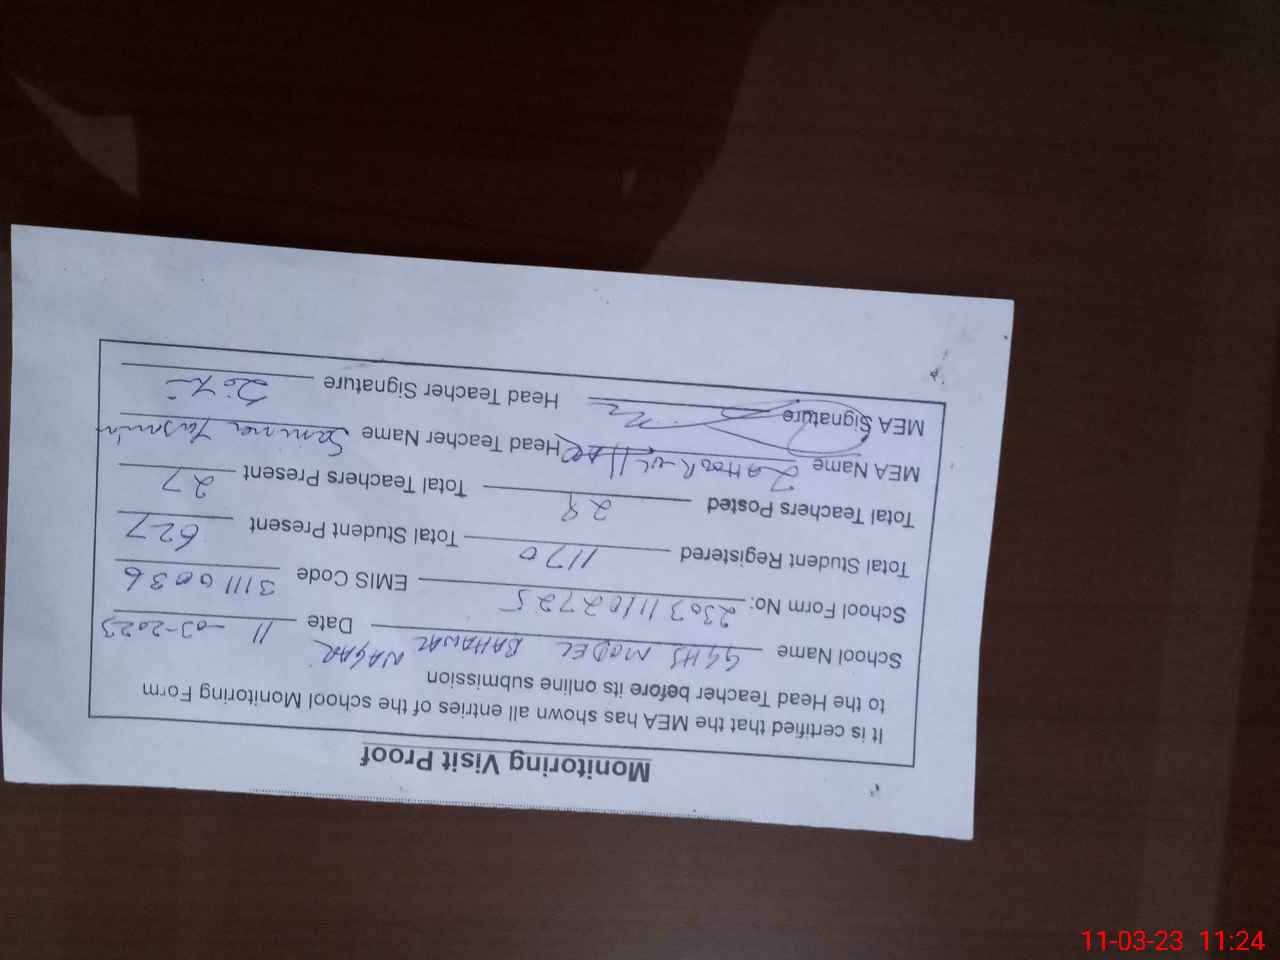 Monitoring Visit Proof
It is certified that the MEA has shown all entries of the school Monitoring Form
to the Head Teacher before its online submission
School Name GGHS MODEL BAHAWAL NAGAR Date 11-03-2023
School Form No: 230311102725 EMIS Code 31110036
Total Student Registered 1170 Total Student Present 627
Total Teachers Posted 29 Total Teachers Present 27
MEA Name Head Teacher Name Samina Yasmin
MEA Signature Head Teacher Signature
11-03-23 11:24